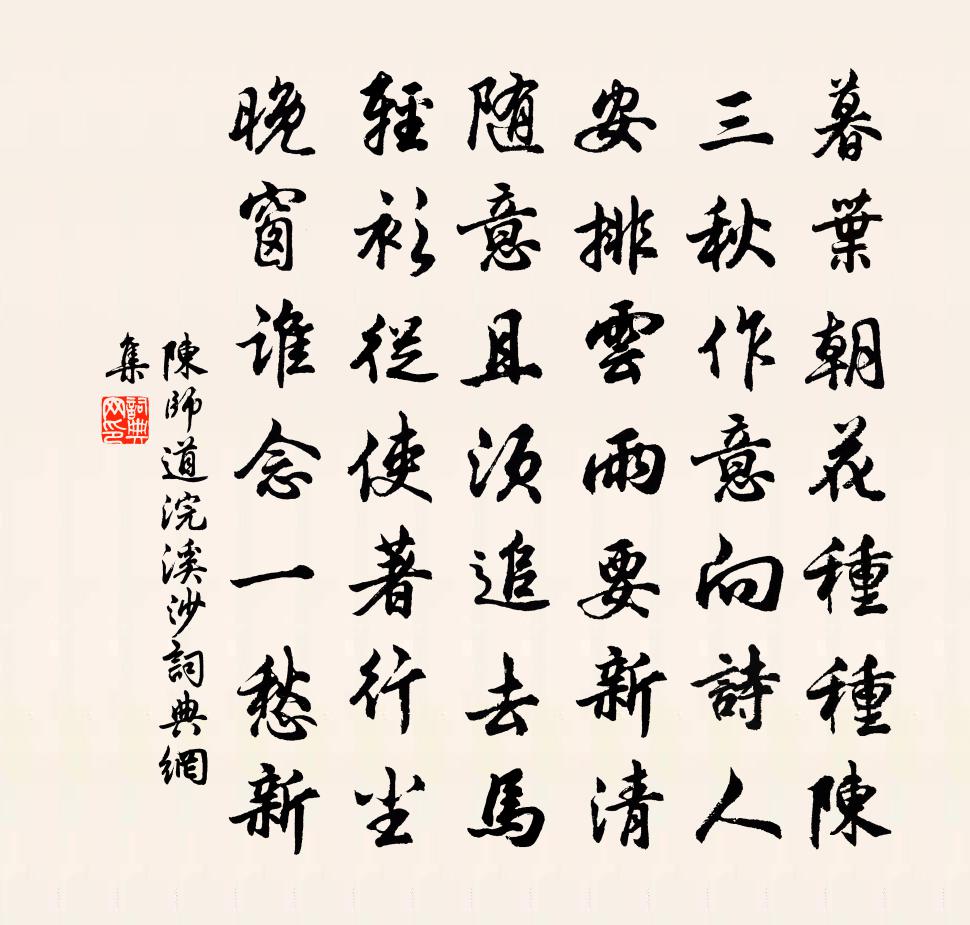 暮葉朝花種種陳
三秋作意向詩人
安排雲雨要新清
随意且須追去馬
輕衫從使著行尘
晚窗誰念一愁新
陳師道浣溪沙詞典網
集
詞典
网印